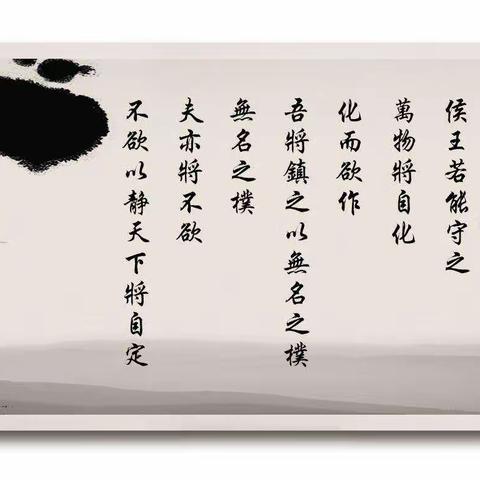 侯王若能守之
萬物將自化
化而欲作
吾將鎮之以無名之樸
無名之樸
夫亦將不欲
不欲以靜天下將自定